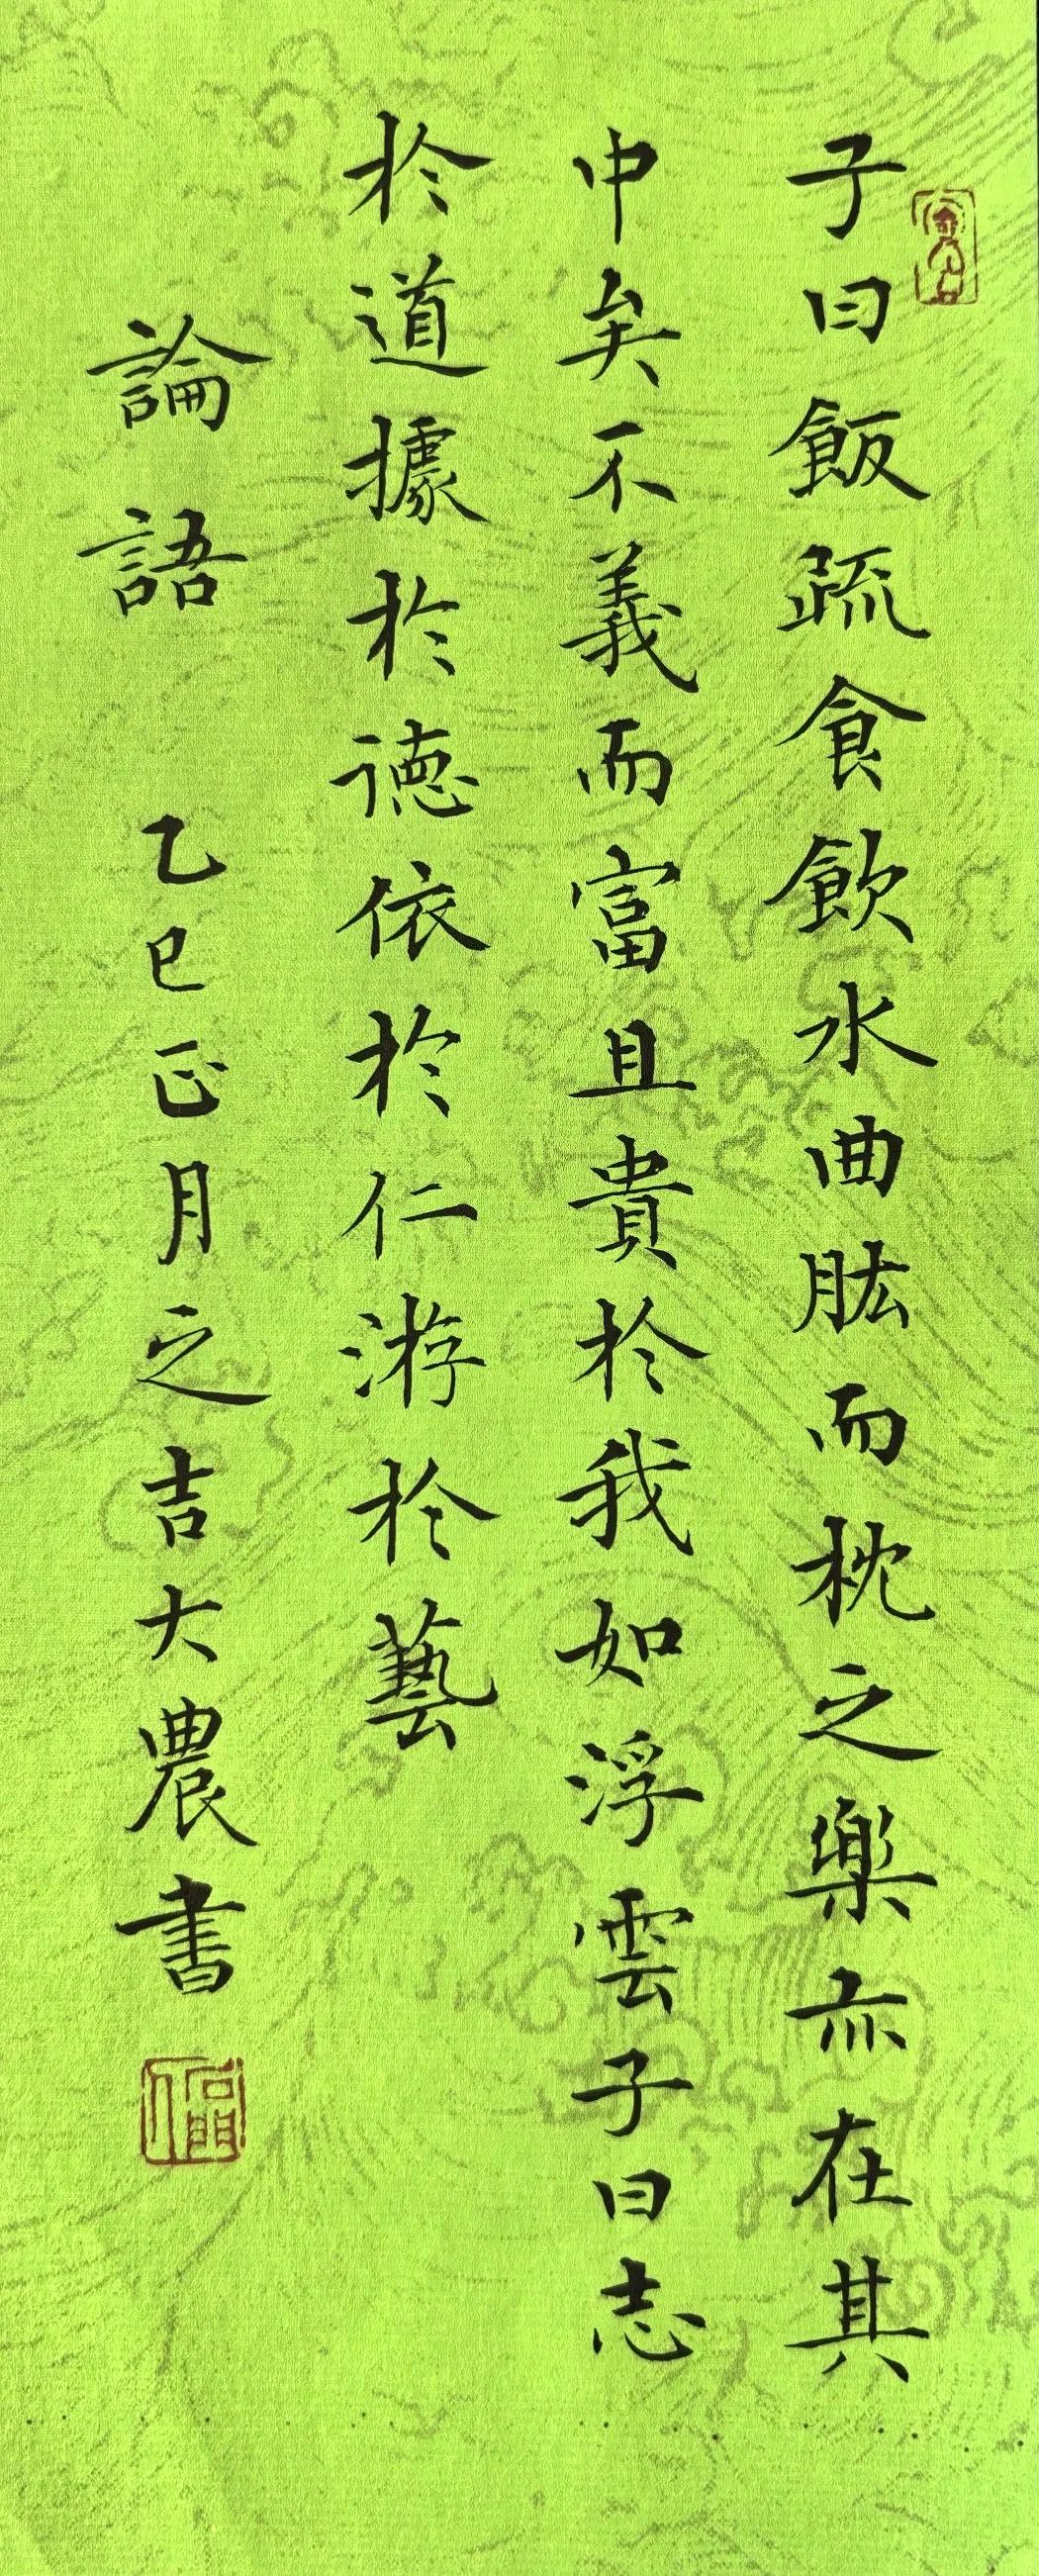 子曰飯疏食飲水曲肱而枕之樂亦在其
中矣不義而富且貴於我如浮雲子曰志
於道據於徳依於仁游於藝
論語 乙巳正月之吉大農書